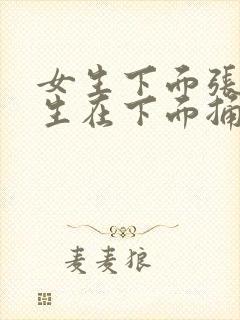 女生下而張
生在下而捅
麦麦狼